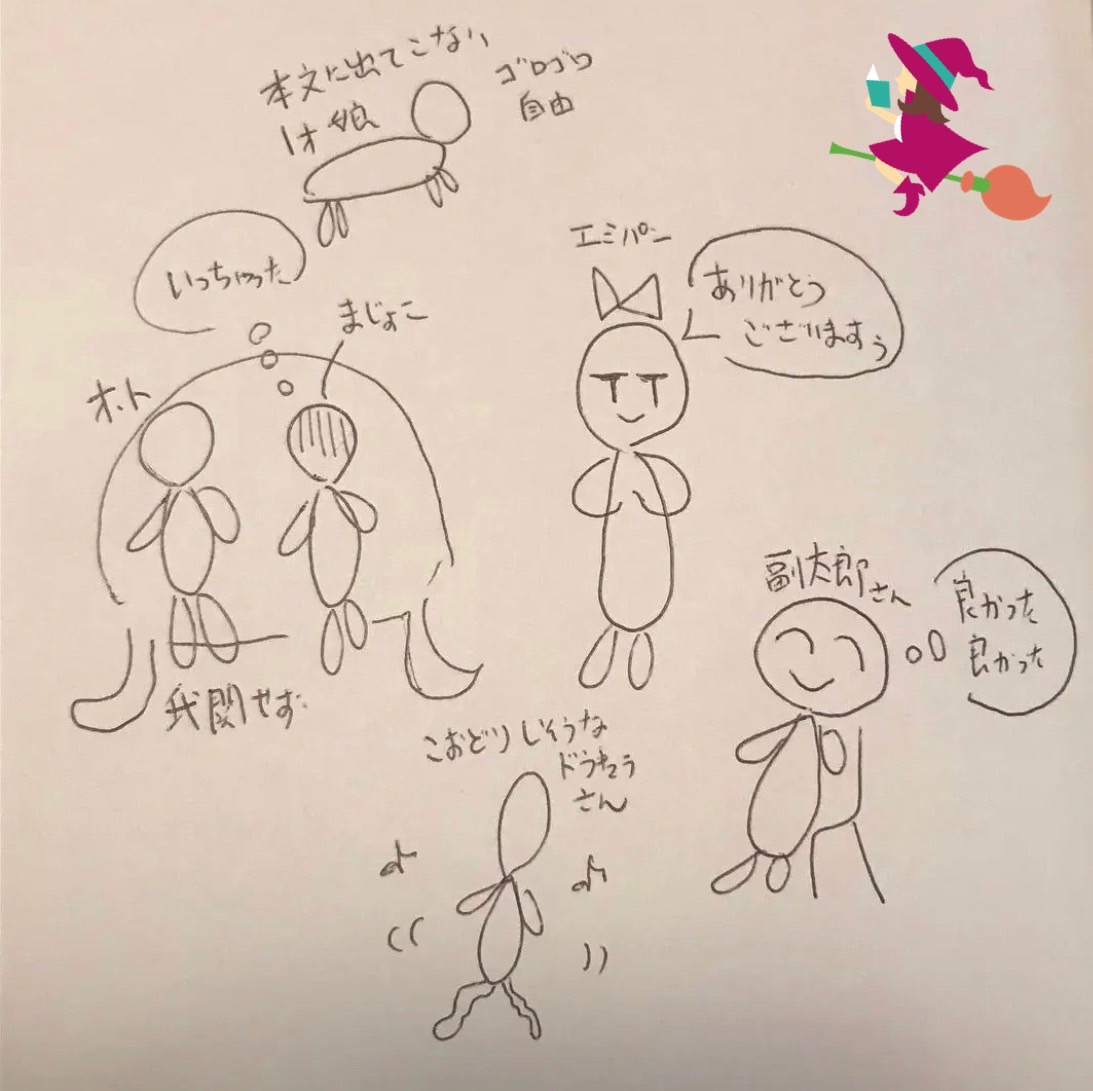 本文に出てこない
1才 娘
ゴロゴロ
自由
いっちゃった
まじょこ
オット
我関せず
エミパン
ありがとう
ございますぅ
副太郎さん
良かった
良かった
こおどりしそうな
さん